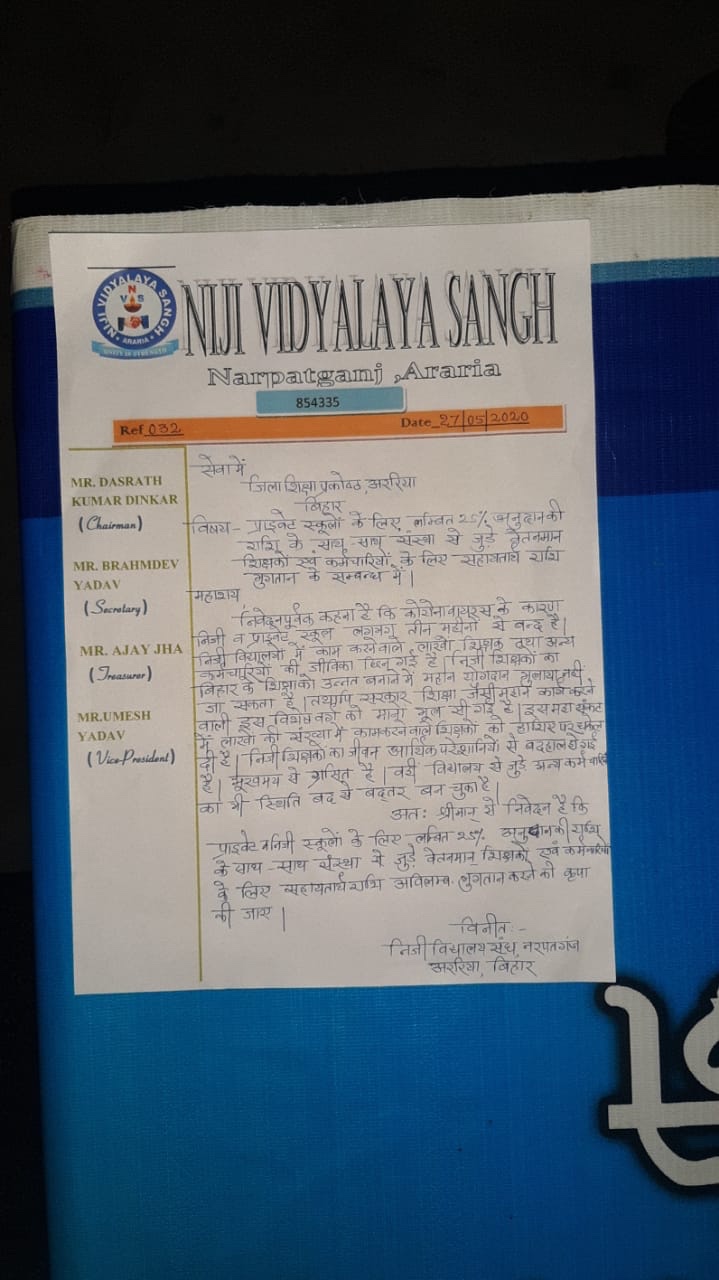 NIJI VIDYALAYA SANGH
NVS
ARARIA
UNITY IS STRENGTH
NIJI VIDYALAYA SANGH
Narpatganj ,Araria
854335
Ref 032
Date_27/05/2020
MR. DASRATH
KUMAR DINKAR
(Chairman)
MR. BRAHMDEV
YADAV
(Secretary)
MR. AJAY JHA
(Treasurer)
MR.UMESH
YADAV
(Vice-President)
सेवा में
जिला शिक्षा प्रकोष्ठ, अररिया
बिहार
विषय - प्राइवेट स्कूलों के लिए, लम्बित 25% अनुदान की
राशि के साथ-साथ संस्था से जुड़े वेतनमान
शिक्षकों एवं कर्मचारियों के लिए सहायतार्थ राशि
भुगतान के सम्बन्ध में।
महाशय,
निवेदनपूर्वक कहना है कि कोरोना वायरस के कारण
निजी व प्राइवेट स्कूल लगभग तीन महीनों से बन्द है।
निजी विद्यालयों में काम करनेवाले लाखों शिक्षक तथा अन्य
कर्मचारियों की जीविका छिन गई है। निजी शिक्षकों का
बिहार के शिक्षा को उन्नत बनाने में महान योगदान भुलाया नहीं
जा सकता है। तथापि सरकार शिक्षा जैसी महान कार्य करने
वाली इस विशेष वर्ग को मानो भूल सी गई है। इस महा संकट
में लाखों की संख्या में काम करने वाले शिक्षकों को हाशिए पर धकेल
दी है। निजी शिक्षकों का जीवन आर्थिक परेशानियों से बदहाल हो गई
है। भूखमय से ग्रसित है। वहीं विद्यालय से जुड़े अन्य कर्मचारियों
का भी स्थिति बद से बद्तर बन चुका है।
अतः श्रीमान् से निवेदन है कि
प्राइवेट व निजी स्कूलों के लिए लम्बित 25% अनुदान की राशि
के साथ-साथ संस्था से जुड़े वेतनमान शिक्षकों एवं कर्मचारियों
के लिए सहायतार्थ राशि अविलम्ब भुगतान करने की कृपा
की जाए।
विनीत:-
निजी विद्यालय संघ, नरपतगंज
अररिया, बिहार